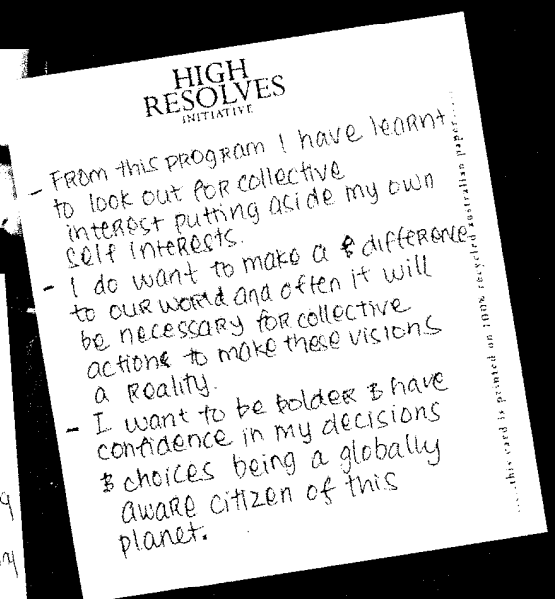 HIGH
RESOLVES
INITIATIVE
- From this program I have learnt
to look out for collective
interest putting aside my own
self interests.
- I do want to make a difference
to our world and often it will
be necessary for collective
actions to make these visions
a reality.
- I want to be bolder & have
confidence in my decisions
& choices being a globally
aware citizen of this
planet.
.....this card is printed on 100% recycled australian paper.....